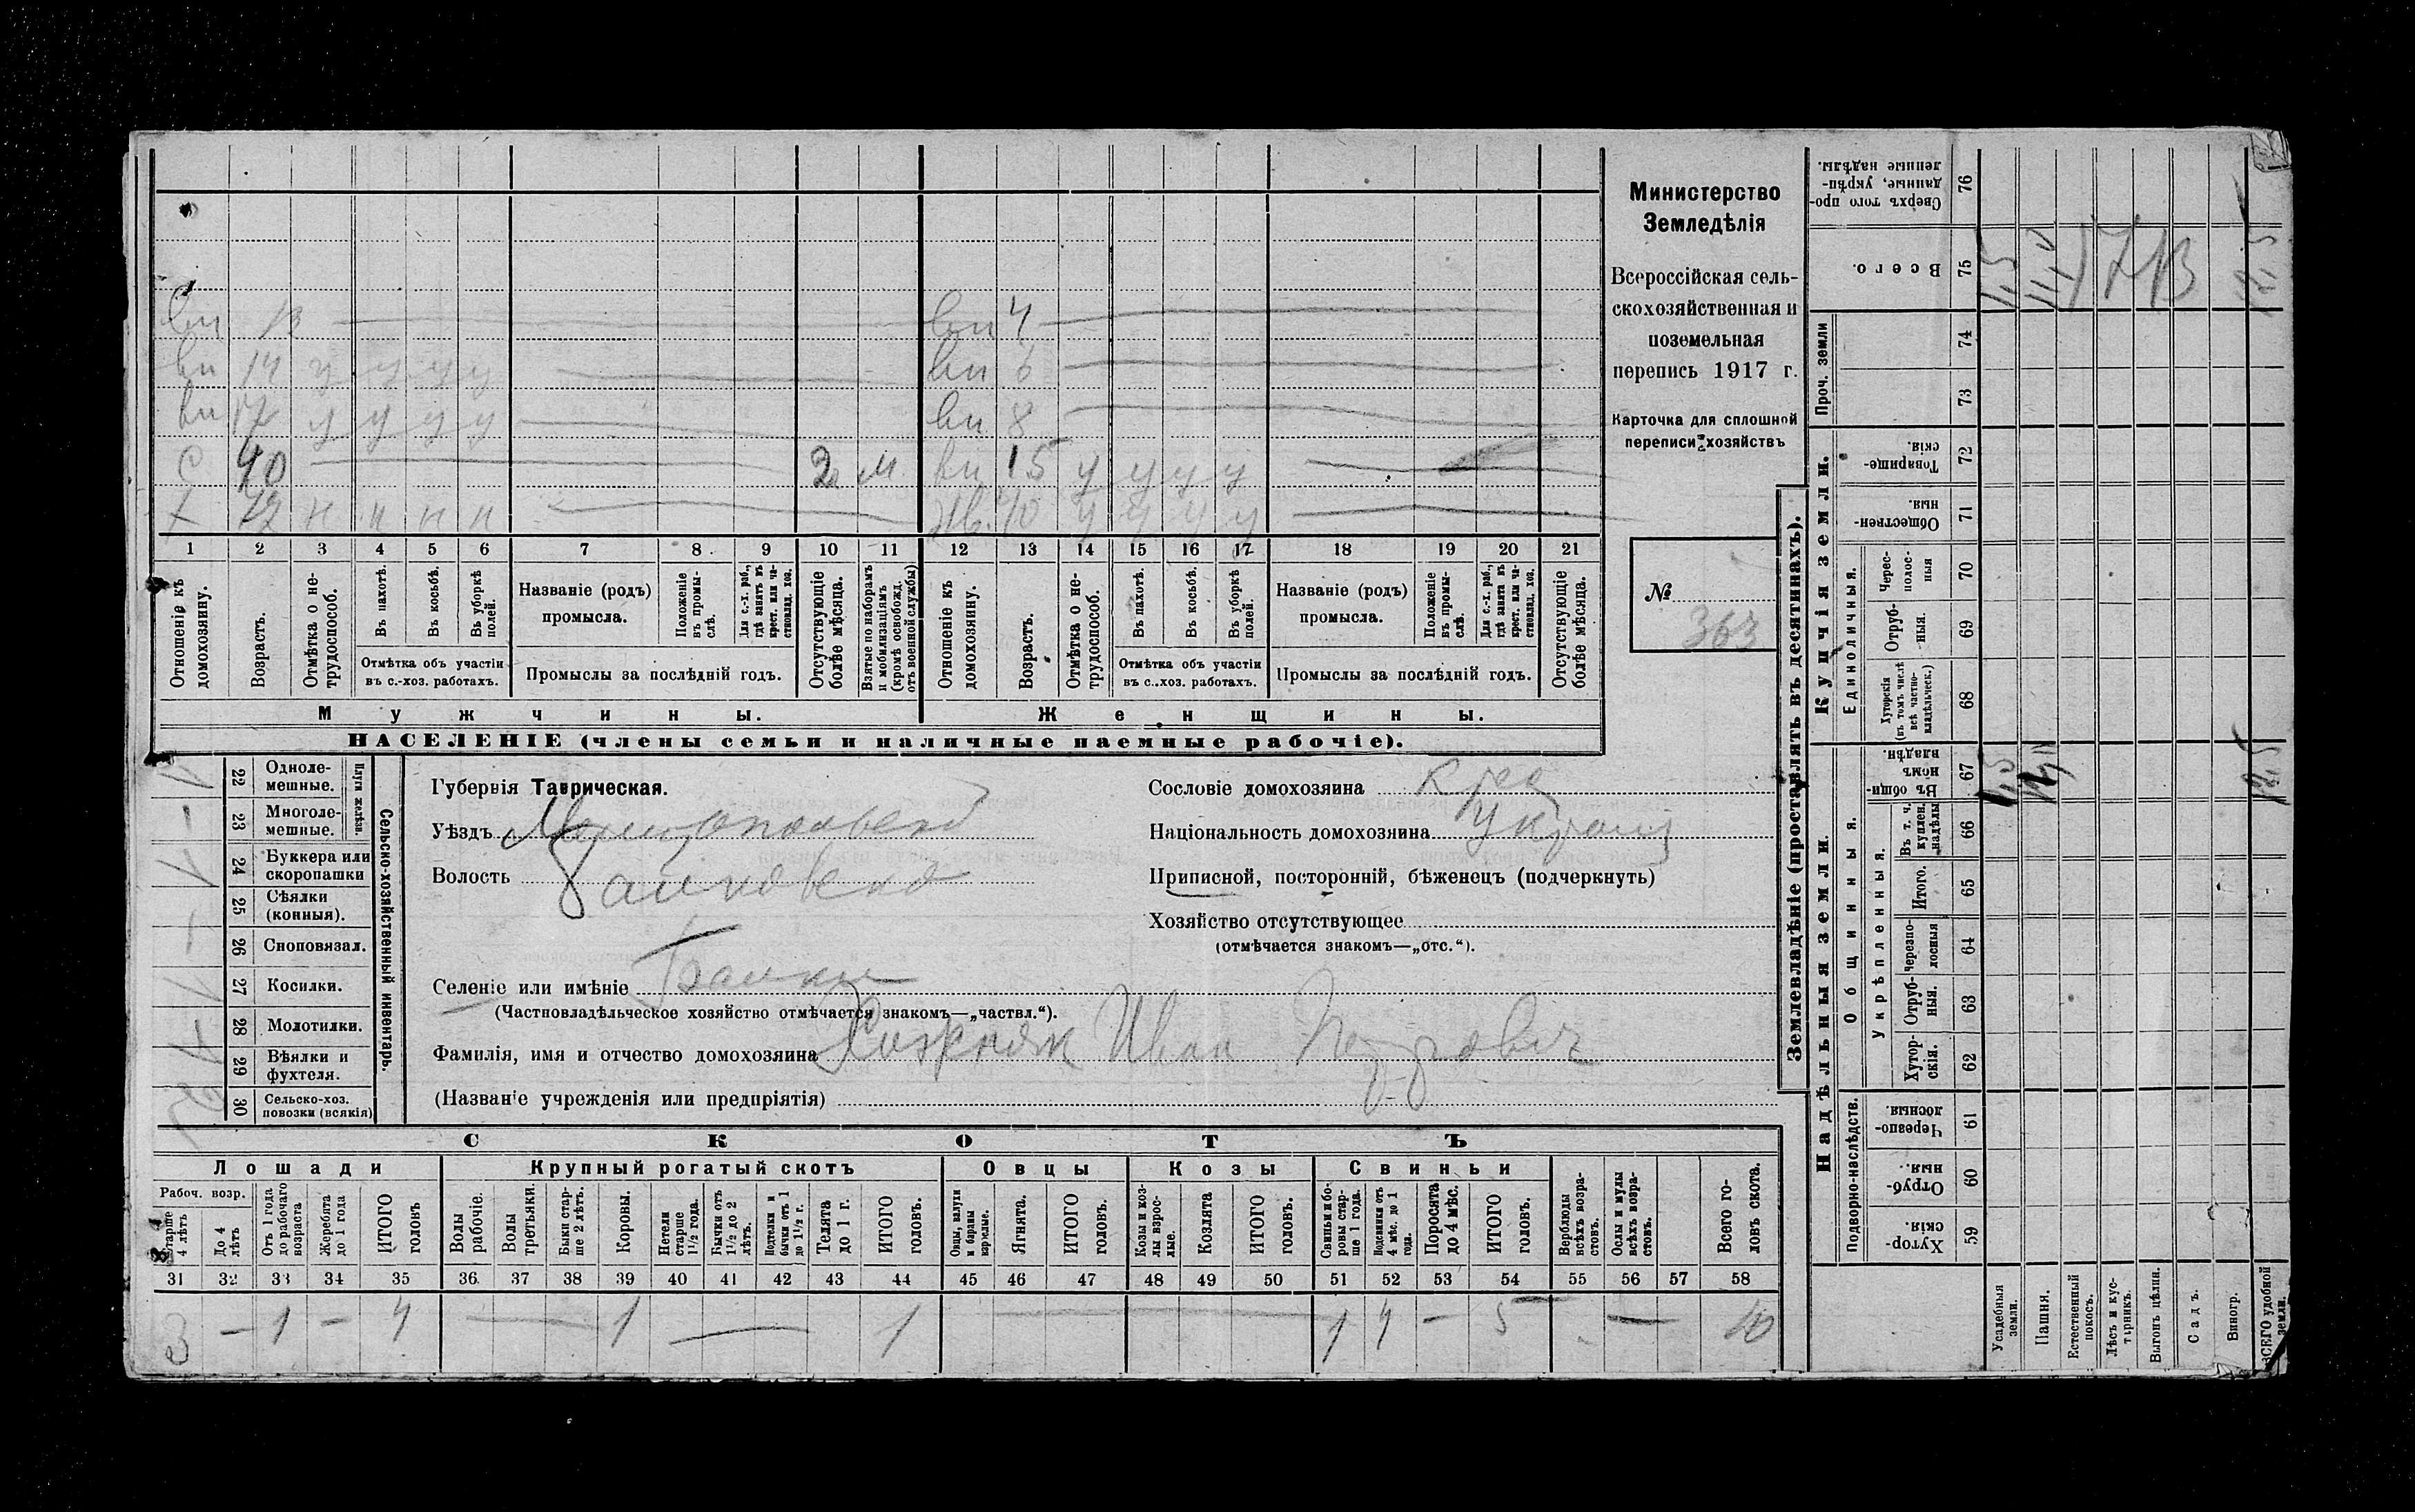 Министерство
Земледѣлія
Всероссійская сель-
скохозяйственная и
поземельная
перепись 1917 г.
Карточка для сплошной
переписи хозяйствъ
№ 363
вн 13
вн 4
вн 14 у у у у
вн 6
вн 17 у у у у
вн 8
с 40 2 м
вн 15 у у у у
х 72 н н н н
жв. 40 у у у у
1 2 3 4 5 6 7 8 9 10 11 12 13 14 15 16 17 18 19 20 21
Отношеніе къ домохозяину.
Возрастъ.
Отмѣтка о не-трудоспособ.
Въ пахотѣ.
Въ косьбѣ.
Въ уборкѣ полей.
Отмѣтка объ участіи
въ с.-хоз. работахъ.
Названіе (родъ)
промысла.
Положеніе въ промы-слѣ.
Для с.-х. раб., гдѣ занятъ въ крест. или ча-стновлад. хоз.
Промыслы за послѣдній годъ.
Отсутствующіе болѣе мѣсяца.
Взятые по наборамъ и мобилизаціямъ (кромѣ освобожд. отъ военной службы)
Отношеніе къ домохозяину.
Возрастъ.
Отмѣтка о не-трудоспособ.
Въ пахотѣ.
Въ косьбѣ.
Въ уборкѣ полей.
Отмѣтка объ участіи
въ с.-хоз. работахъ.
Названіе (родъ)
промысла.
Положеніе въ промы-слѣ.
Для с.-х. раб., гдѣ занята въ крест. или ча-стновлад. хоз.
Промыслы за послѣдній годъ.
Отсутствующіе болѣе мѣсяца.
Мужчины.
Женщины.
НАСЕЛЕНІЕ (члены семьи и наличные наемные рабочіе).
Сельско-хозяйственный инвентарь.
Плуги желѣзн.
22 Одноле-мешные. 1
23 Многоле-мешные. –
24 Буккера или скоропашки 1
25 Сѣялки (конныя). –
26 Сноповязал. –
27 Косилки. 1
28 Молотилки.
29 Вѣялки и фухтеля.
30 Сельско-хоз. повозки (всякія)
Губернія Таврическая.
Уѣздъ Мелитопольской
Волость Балковской
Селеніе или имѣніе Балки
(Частновладѣльческое хозяйство отмѣчается знакомъ—„частвл.“).
Фамилія, имя и отчество домохозяина Иван Петрович
(Названіе учрежденія или предпріятія)
Сословіе домохозяина Крес
Національность домохозяина Украин
Приписной, посторонній, бѣженецъ (подчеркнуть)
Хозяйство отсутствующее
(отмѣчается знакомъ—„отс.“).
СКОТЪ
Лошади
Крупный рогатый скотъ
Овцы
Козы
Свиньи
Рабоч. возр.
Старше 4 лѣтъ
До 4 лѣтъ
Отъ 1 года до рабочаго возраста
Жеребята до 1 года
ИТОГО головъ
Волы рабочіе.
Волы третьяки.
Быки стар-ше 2 лѣтъ.
Коровы.
Нетели старше 1 1/2 года.
Бычки отъ 1 1/2 до 2 лѣтъ.
Подтелки и бычки отъ 1 до 1 1/2 г.
Телята до 1 г.
ИТОГО головъ.
Овцы, валухи и бараны взрослые.
Ягнята.
ИТОГО головъ.
Козы и коз-лы взрос-лые.
Козлята
ИТОГО головъ.
Свиньи и бо-ровы стар-ше 1 года.
Подсвинки отъ 4 мѣс. до 1 года.
Поросята до 4 мѣс.
ИТОГО головъ.
Верблюды всѣхъ возра-стовъ.
Ослы и мулы всѣхъ возра-стовъ.
Всего го-ловъ скота.
31 32 33 34 35 36 37 38 39 40 41 42 43 44 45 46 47 48 49 50 51 52 53 54 55 56 57 58
3 – 1 – 4 – 1 – 1 – 1 4 – 5 – 10
Землевладѣніе (проставлять въ десятинахъ).
Купчія земли.
Надѣльныя земли.
Проч. земли
Единоличныя.
Общинныя.
Укрѣпленныя.
Подворно-наслѣдств.
76 Сверхъ того про-данные, укрѣп-ленные надѣлы.
75 Всего.
74
73
72 Товарище-скія.
71 Обществен-ныя.
70 Черес-полос-ныя
69 Отруб-ныя.
68 Хуторскія (въ томъ числѣ всѣ частно-владѣльческ.)
67 Въ общин-номъ владѣн.
66 Въ т. ч. куплен. надѣлы
65 Итого.
64 Черезпо-лосныя
63 Отруб-ныя.
62 Хутор-скія.
61 Черезпо-лосныя
60 Отруб-ныя.
59 Хутор-скія.
Усадебныя земли.
Пашня.
Естественный покосъ.
Лѣсъ и кус-тарникъ.
Выгонъ цѣлин.
Садъ.
Виногр.
ВСЕГО удобной земли.